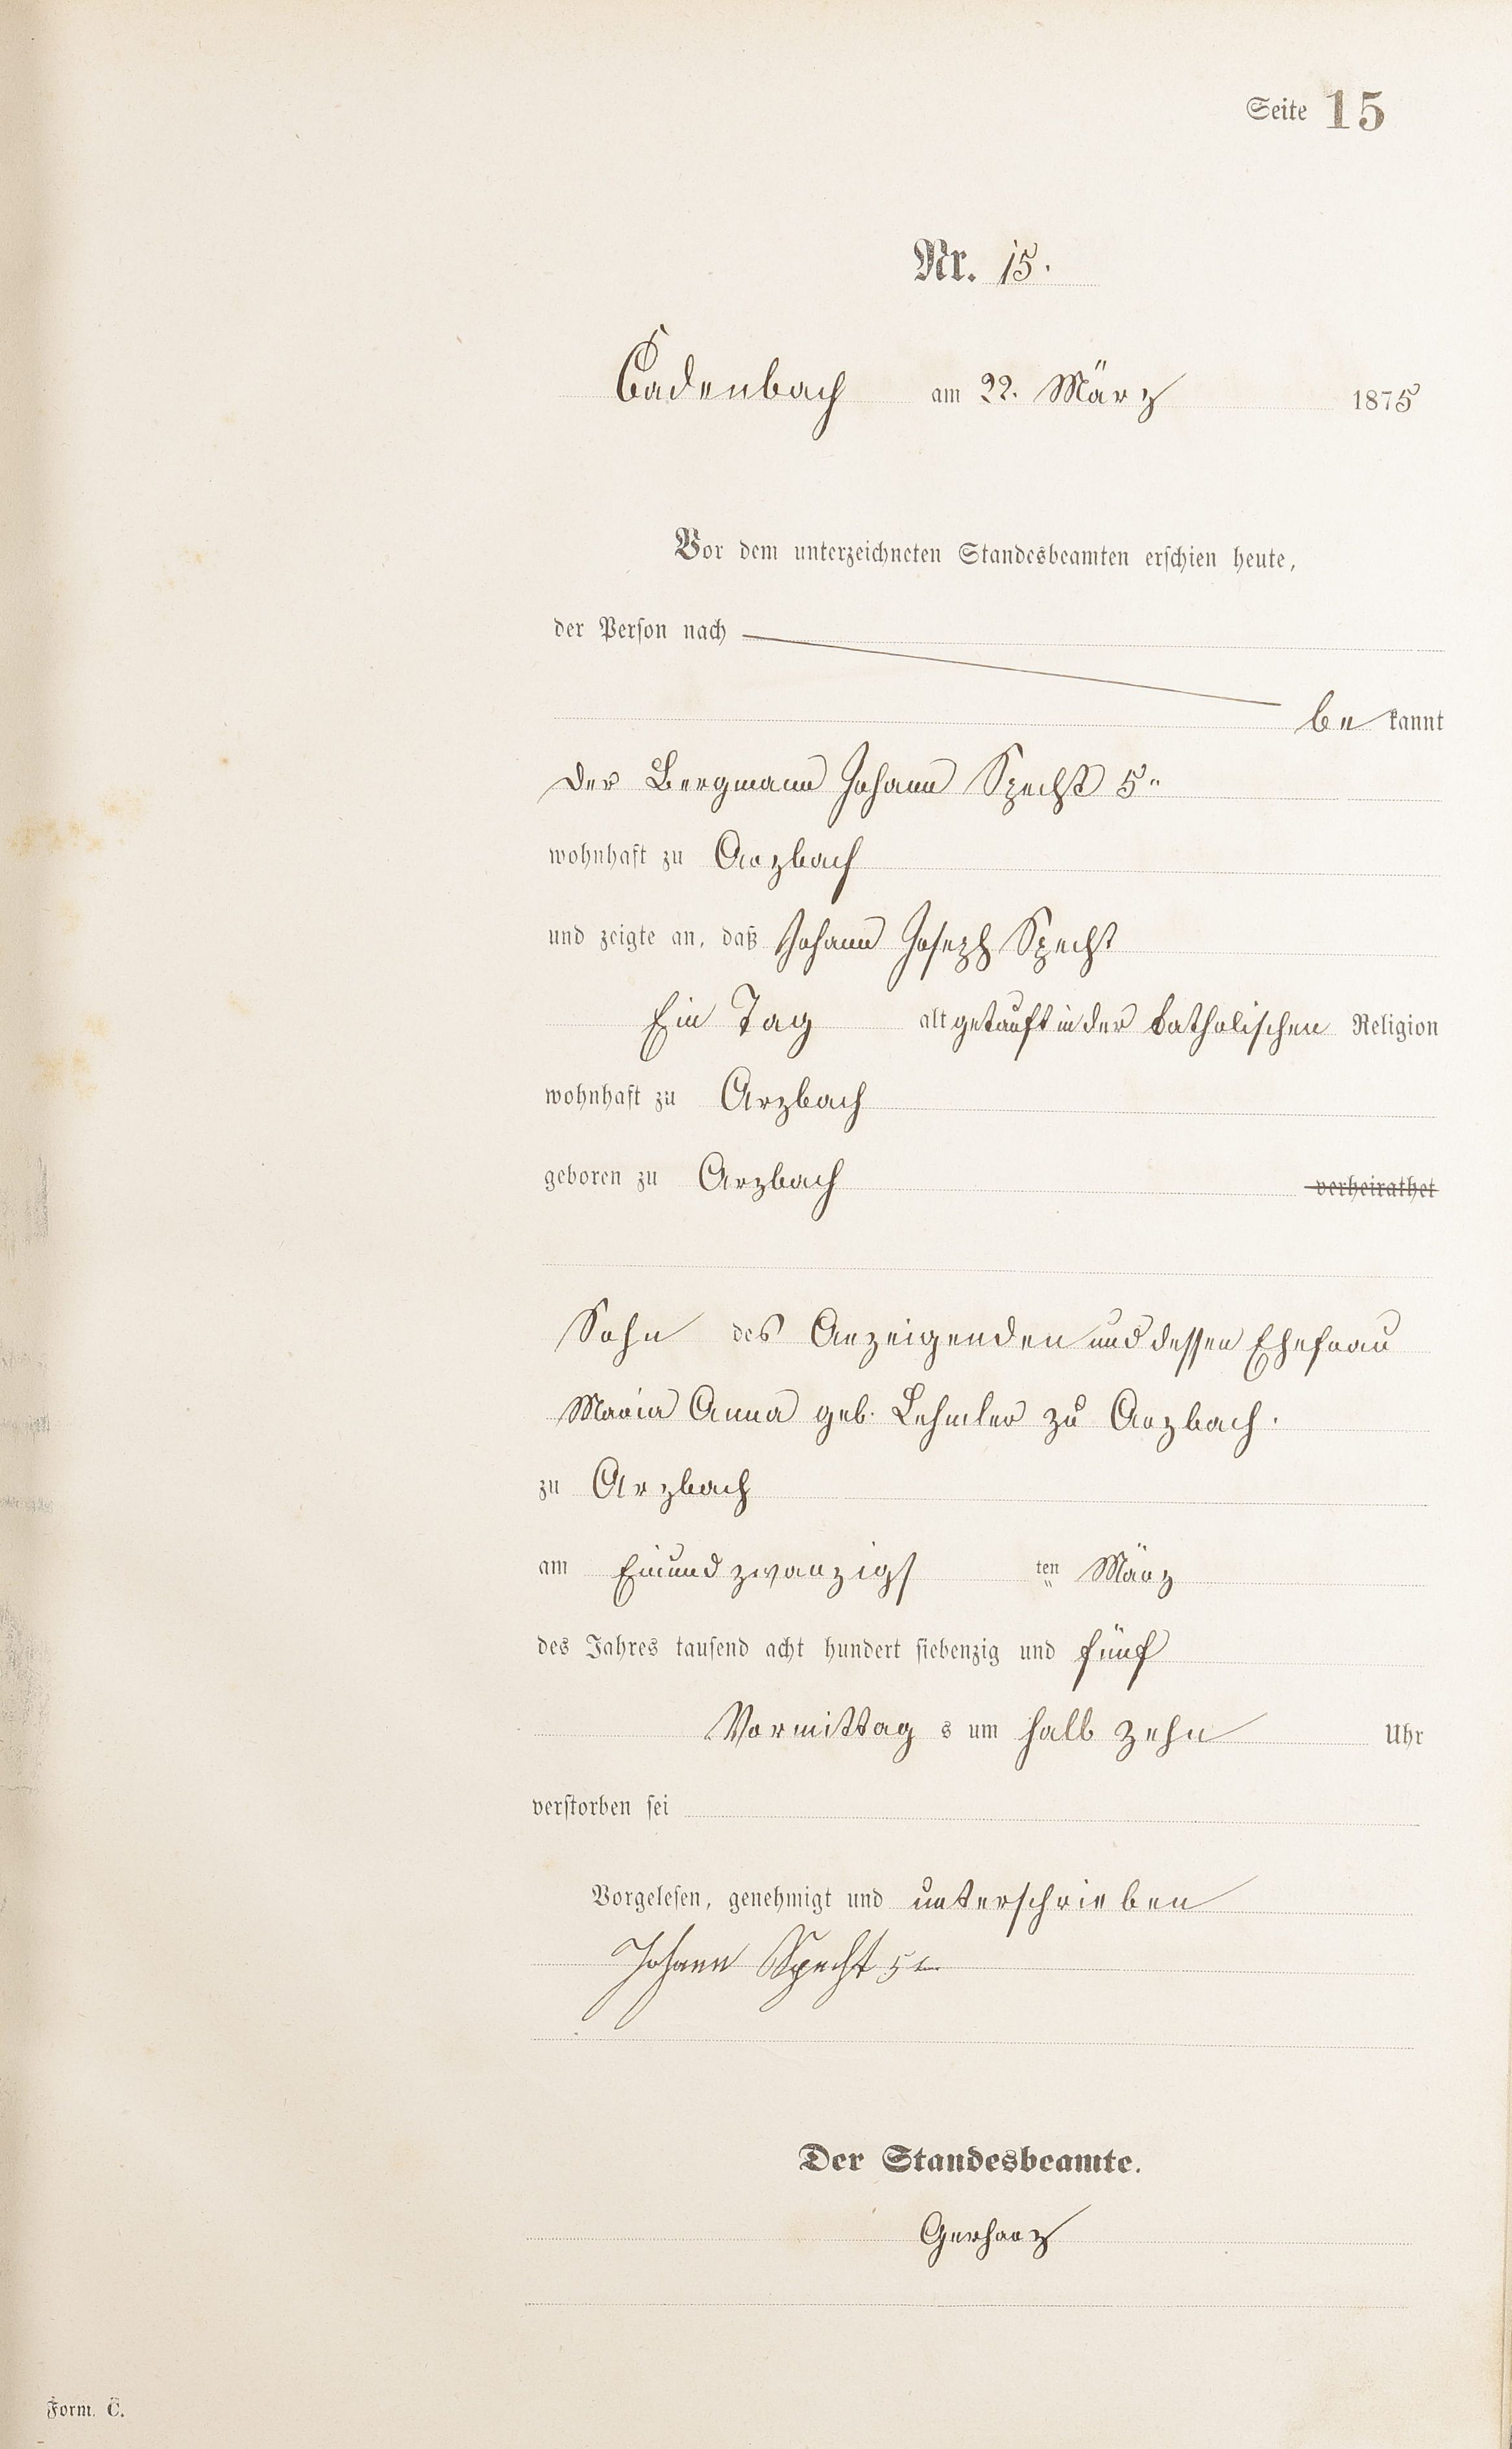 Seite 15
Nr. 15.
Cadenbach am 22. März 1875
Vor dem unterzeichneten Standesbeamten erschien heute,
der Person nach
be kannt
der Bergmann Johann Specht 5"
wohnhaft zu Arzbach
und zeigte an, daß Johann Joseph Specht
Ein Tag alt getauft in der katholischen Religion
wohnhaft zu Arzbach
geboren zu Arzbach verheirathet
Sohn des Anzeigenden und dessen Ehefrau
Maria Anna geb. Lehmler zu Arzbach.
zu Arzbach
am Einundzwanzigs ten März
des Jahres tausend acht hundert siebenzig und fünf
Vormittag s um halb zehn Uhr
verstorben sei
Vorgelesen, genehmigt und unterschrieben
Johann Specht 5t
Der Standesbeamte.
Gerharz
Form. C.